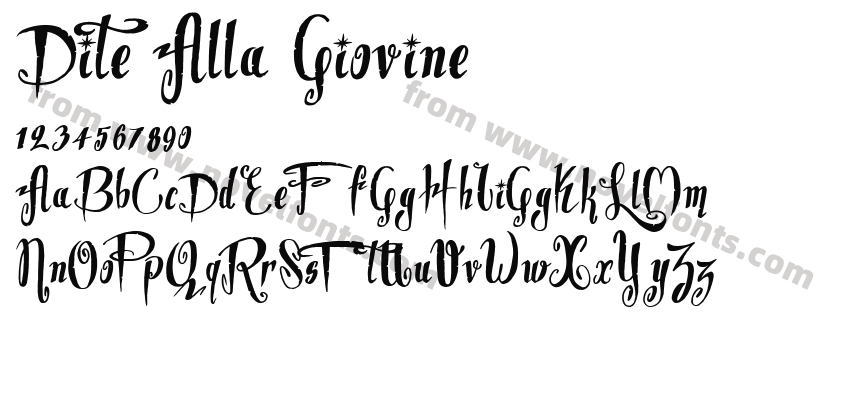 Dite Alla Giovine
1234567890
AaBbCcDdEeFfGgHhIiGgKkLlMm
NnOoPpQqRrSsTtUuVvWwXxYyZz
from www.novelfonts.com
from www.novelfonts.com